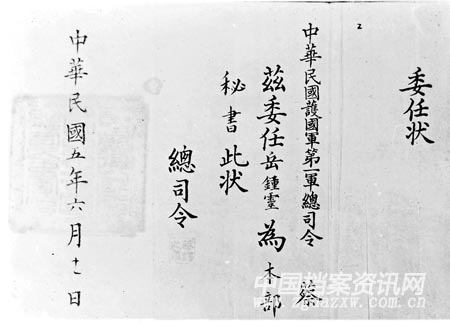 委任状
中華民國護國軍第一軍總司令 蔡
茲委任岳鍾靈為本部
秘書此状
總司令
中華民國五年六月十一日
2
中国档案资讯网
www.zgdazxw.com.cn